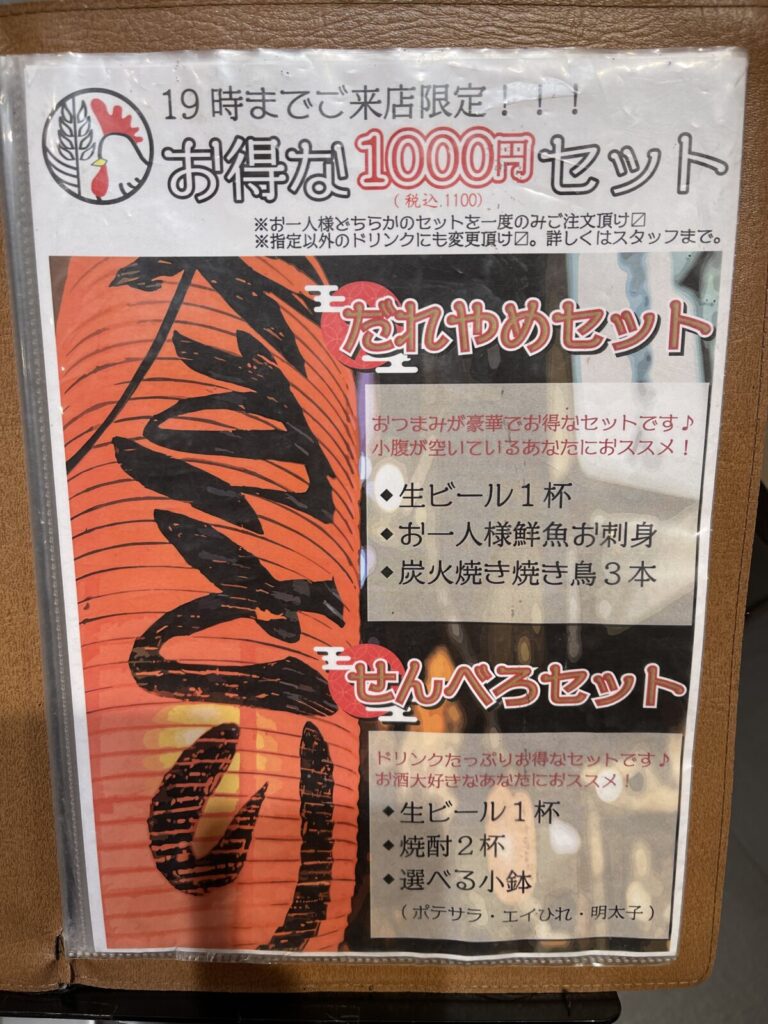 19時までご来店限定！！！
お得な1000円セット
(税込.1100)
※お一人様どちらかのセットを一度のみご注文頂け〼
※指定以外のドリンクにも変更頂け〼。詳しくはスタッフまで。
だれやめセット
おつまみが豪華でお得なセットです♪
小腹が空いているあなたにおススメ！
◆生ビール１杯
◆お一人様鮮魚お刺身
◆炭火焼き焼き鳥３本
せんべろセット
ドリンクたっぷりお得なセットです♪
お酒大好きなあなたにおススメ！
◆生ビール１杯
◆焼酎２杯
◆選べる小鉢
（ポテサラ・エイひれ・明太子）